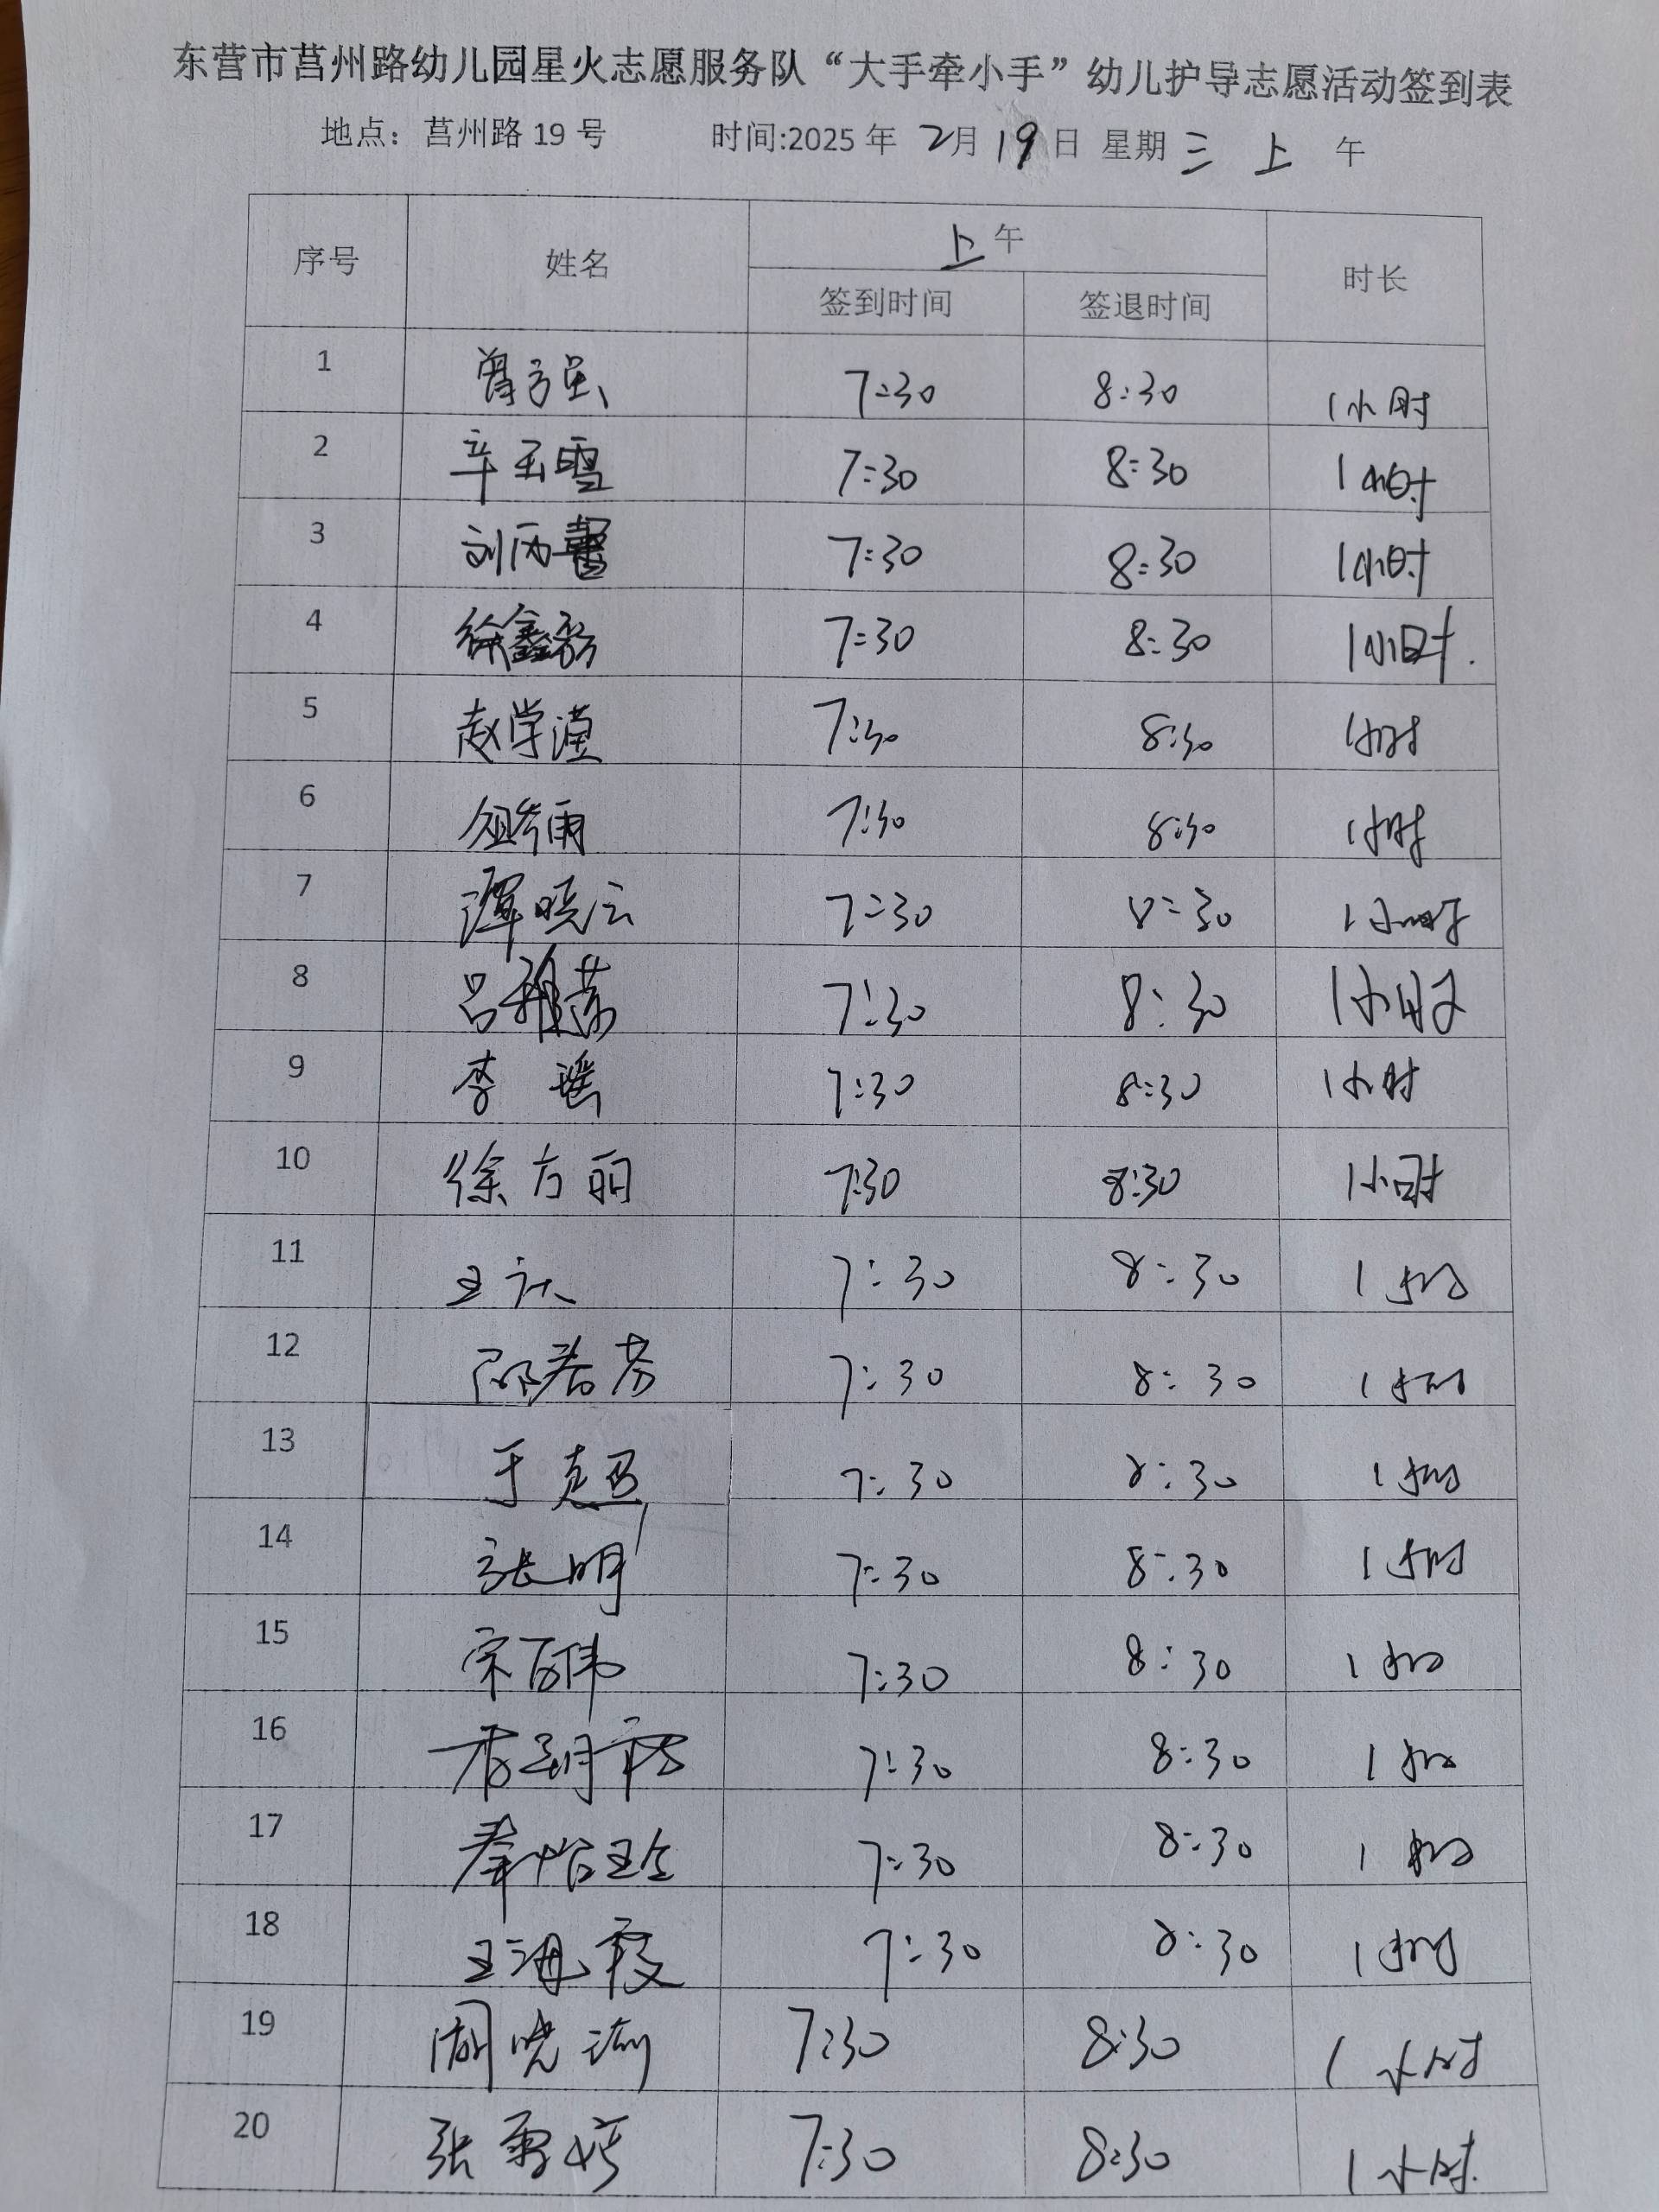 东营市莒州路幼儿园星火志愿服务队“大手牵小手”幼儿护导志愿活动签到表
地点：莒州路 19 号 时间:2025 年 2月 19日 星期 三 上 午
序号 姓名 上午 时长
签到时间 签退时间
1 7:30 8:30 1小时
2 辛玉雪 7:30 8:30 1小时
3 刘雨馨 7:30 8:30 1小时
4 徐鑫 7:30 8:30 1小时.
5 赵学滢 7:30 8:30 1小时
6 7:30 8:30 1小时
7 谭晓云 7:30 8:30 1小时
8 吕雅 7:30 8:30 1小时
9 李 瑶 7:30 8:30 1小时
10 徐方丽 7:30 8:30 1小时
11 王 7:30 8:30 1小时
12 邵芬 7:30 8:30 1小时
13 于超 7:30 8:30 1小时
14 张明 7:30 8:30 1小时
15 宋百伟 7:30 8:30 1小时
16 7:30 8:30 1小时
17 7:30 8:30 1小时
18 王海霞 7:30 8:30 1小时
19 周晓 7:30 8:30 1小时
20 张雪婷 7:30 8:30 1小时.